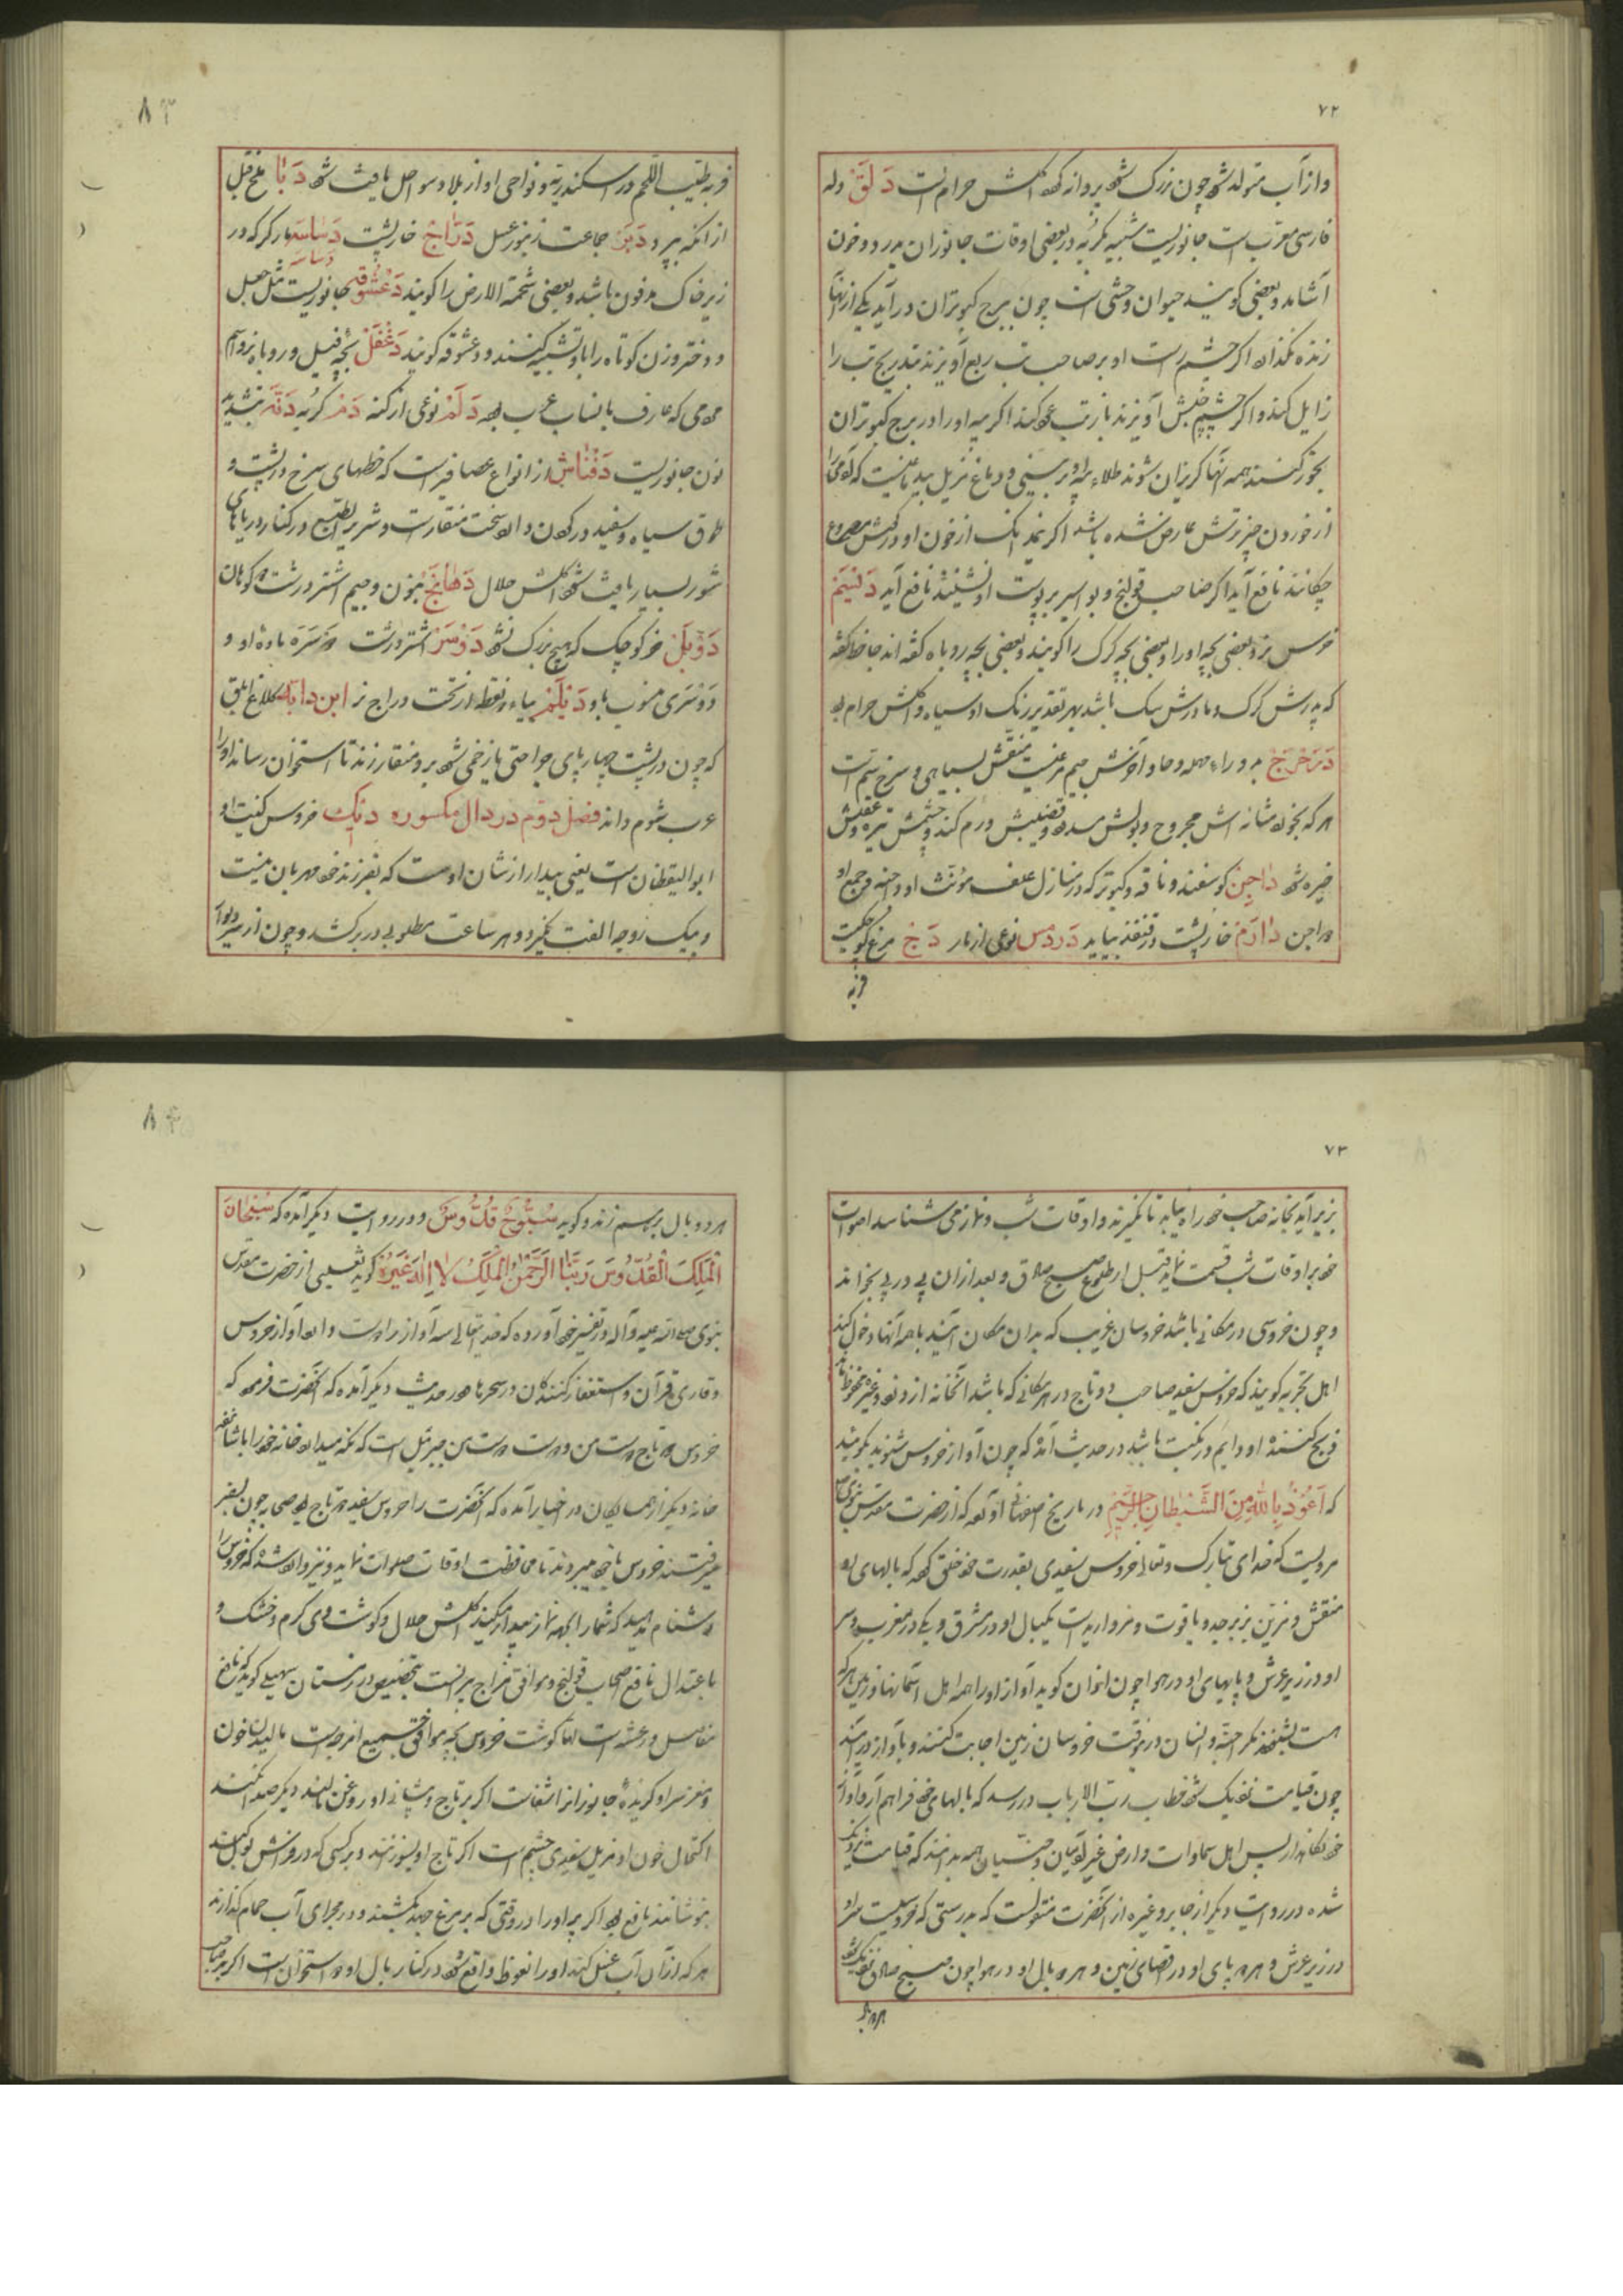 ۷۲
و از آب متولد شود چون بزرگ شود پرواز کند اکلش حرام است دَلَق دله
فارسی معرب است جانوریست شبیه بگربه در بعضی اوقات جانوران بدرد و خون
آشامد و بعضی گویند حیوان وحشی است چون ببرج کبوتران درآید یکی از آنها
زنده نگذارد اگر چشم راست او بر صاحب تب ربع آویزند بتدریج تب را
زایل کند و اگر چشم چپش آویزند باز تب عود کند اگر پیه او را در برج کبوتران
بخور کنند همه آنها گریزان شوند طلاء پیه او بر بینی و دماغ
از خوردن چیز ترش عارض شده باشد اگر نیم دانگ از خون او در گوش مصروع
چکانند نافع آید اگر صاحب قولنج و بواسیر بر پوست او نشیند نافع آید دَلیَم
خرس نر و بعضی بچه او را و بعضی بچه گرگ را گویند و بعضی بچه روباه گفته اند جاحظ گفته
که پدرش گرگ و مادرش سگ باشد بهر تقدیر رنگ او سیاه و اکلش حرام بود
دحرج بدو راء مهمله و حا و آخرش جیم مرغیست منقش بسیاهی و سرخ سم است
هر که بخورد مثانه اش مجروح و بولش سده و قضیبش ورم کند و چشمش تیره و عقلش
خیره شود داجِن گوسفند و ناقه و کبوتر که در منازل علف مؤنث او داجنه و جمع او
دواجن دارم خارپشت در قنفذ بیاید دَردمس نوعی از مار دَج مرغ کوچکیست
فربه
فربه طیب اللحم در اسکندریه و نواحی او از بلاد سواحل یافت شود دَبا ملخ قبل
از انکه بپرد دَبر جماعت زنبور عسل دَرّاج خارپشت دَسّاسه مار کر که در
زیر خاک مدفون باشد و بعضی شحمة الارض را گویند دَعشوقه جانوریست مثل جعل
و دختر و زن کوتاه را باو تشبیه کنند و دعشوقه گویند دَغفَل بچه فیل و روباه نر و اسم
مردمی که عارف بانساب عرب بود دَلَم نوعی از کنه دَم گربه دَنّه بتشدید
نون جانوریست دَقناش از انواع عصافیر است که خطهای سرخ در پشت و
طوق سیاه و سفید در گردن دارد سخت منقار است و شریر الطبع در کنار دریاهای
شور بسیار یافت شود اکلش حلال دَهانج بنون و جیم اشتر درشت دو کوهان
دَوبَل خر کوچک که هیچ بزرگ نشود دَوسَر اشتر درشت دوسره ماده او و
دوسری منسوب باو دَیلَم بیاء دو نقطه از تحت دراج نر ابن دایه کلاغ ابلق
که چون در پشت چهارپای جراحتی یا زخمی شود برو منقار زند تا استخوان رساند او را
عرب شوم داند فصل دوم در دال مکسوره دیک خروس کنیت او
ابوالیقظان است یعنی بیدار از شان اوست که بفرزند خود مهربان نیست
و بیک زوجه الفت نگیرد و هر ساعت مطلوبی در بر کشد و چون از سر دیوار
۷۳
بزیر آید بخانه صاحب خود راه نیابد تا نگیرند و اوقات شب و نماز می شناسد اصوات
خود بر اوقات شب قسمت نماید قبل از طلوع صبح صادق و بعد از ان پی در پی بخواند
و چون خروسی در مکانی باشد خروسان غریب که بدان مکان آیند با همه آنها دخول کند
اهل تجربه گویند که خروس سفید صاحب دو تاج در هر مکانی که باشد آنخانه از دزد و غیره محفوظ ماند
ذبح کننده او دایم در نکبت باشد در حدیث آمده که چون آواز خروس شنوید بگویید
که اَعُوذُ بِاللهِ مِنَ الشَّیطانِ الرَّجیمِ در تاریخ اصفهانی آورده که از حضرت مقدس نبوی
مرویست که خدای تبارک و تعالی خروس سفیدی بقدرت خود خلق کرد که بالهای او
منقش و مزین بزبرجد و یاقوت و مروارید است یکبال او در مشرق و یکی در مغرب و سر
او در زیر عرش و پایهای او در هوا چون اذان گوید آواز او را همه اهل آسمانها و زمین هر که
هست بشنود مگر جنّ و انسان در آنوقت خروسان زمین اجابت کنند و باواز درآیند
چون قیامت نزدیک شود خطاب رب الارباب در رسد که بالهای خود فراهم آر و آواز
خود نگاهدار پس اهل سماوات و ارض غیر آدمیان و جنیان همه بدانند که قیامت نزدیک
شده در روایت دیگر از جابر و غیره از آنحضرت منقولست که بدرستی که خروسیست سر او
در زیر عرش و هر دو پای او در اقصای زمین و هر دو بال او در هوا چون صبح صادق نزدیک شود
هر دو بال
هر دو بال بر هم زند و گوید سُبّوحٌ قُدّوسٌ و در روایت دیگر آمده که سُبحانَ
المَلِکِ القُدّوسِ رَبّنا الرَّحمن المَلِک لا اِلهَ غَیرُه گوید ثعلبی از حضرت مقدس
نبوی صلی الله علیه و آله در تفسیر خود آورده که خدایتعالی سه آواز را دوست دارد آواز خروس
و قاری قرآن و استغفار کنندگان در سحرها و در حدیث دیگر آمده که آنحضرت فرمود که
خروس دو تاج دوست من و دوست دوست من جبرئیل است که نگه میدارد خانه خود را با شانزده
خانه دیگر از همسایگان در اخبار آمده که آنحضرت را خروس سفید دو تاج بود صحابه چون بسفر
میرفتند خروس با خود میبردند تا محافظت اوقات صلوات نماید و نیز وارد شده که خروس را
دشنام مدهید که شما را بجهة نماز بیدار میکند اکلش حلال و گوشت وی گرم و خشک و
باعتدال نافع اصحاب قولنج و موافق مزاج پیرانست بتخصیص در زمستان سهیلی گوید که نافع
مفاصل و رعشه است اما گوشت خروس بچه موافق جمیع امزجه است مالیدن خون
و مغز سر او گزیده جانوران را شفاست اگر بر تاج و پیشانی او روغن مالند دیگر صدا نکند
اکتحال خون او مزیل سفیدی چشم است اگر تاج او بسوزند و بر کسی که در فراش بول کند
بنوشانند نافع بود اگر پر او را در وقتی که بر مرغ جهد بکشند و در مجرای آب حمام گذارند
هر که از آن آب غسل کند او را نعوظ واقع شود در کنار بال او دو استخوان است اگر بر صاحب